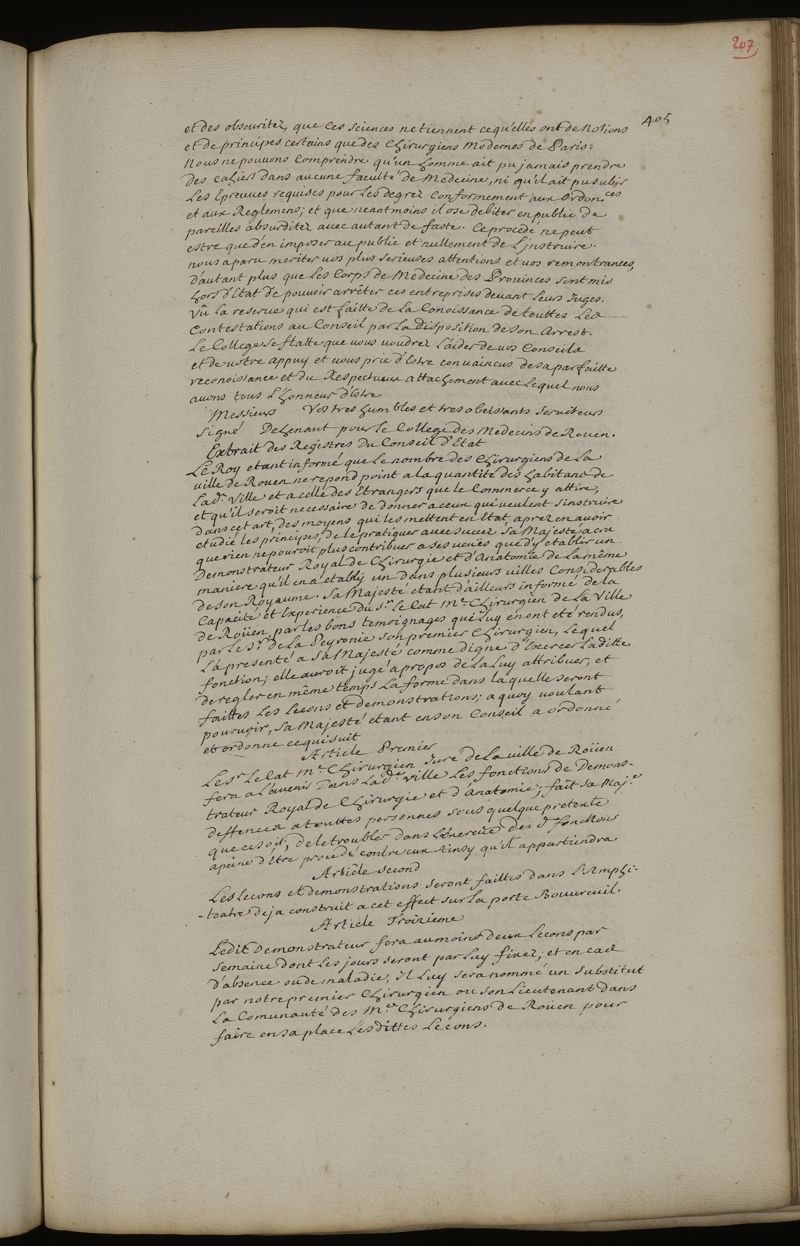 207
405
et des obscuritez, que ces sciences ne tiennent ce qu'elles ont de Notions
et de principes certains que des Chirurgiens Modernes de Paris.
Nous ne pouvons Comprendre qu'un homme ait pu jamais prendre
des cahiers dans aucune faculté de Medecine, ni qu'il ait pu subir
Les Epreuves requises pour Les degrez Conformement aux Ordon.ces
et aux Reglemens; et que neantmoins il ose debiter en public de
pareilles absurditez avec autant de faste. Ce procedé ne peut
estre que d'en imposer au public et nullement de L'instruire.
nous a paru meriter vos plus serieuses attentions et vos remontrances,
d'autant plus que Les Corps de Medecine des Provinces sont mis
hors d'Etat de pouvoir arrêter ces entreprises devant Leurs Juges.
Vu la reserve qui est faitte de La Conoissance de touttes Les
Contestations au Conseil par La disposition de son Arrest.
Le College se flatte que vous voudrez L'aider de vos Conseils
et de votre appuy et vous prie d'Estre convaincus de sa parfaitte
reconoissance et du Respectueux attachement avec Lequel nous
avons tous L'honneur d'Estre
Messieurs Vos tres humbles et tres obeissants serviteurs
Signé Dehenaut pour le College des Medecins de Rouen.
Extrait des Registres Du Conseil d'Etat
Le Roy etant informé que Le nombre des Chirurgiens de La
ville de Rouen ne repond point a la quantité des habitans de
Lad.e Ville et a celle des Etrangers que le Commerce y attire,
et qu'il seroit necessaire de donner a ceux qui veulent s'instruire
dans cet art, des moyens qui les mettent en Etat, aprez en avoir
etudié les principes, de le pratiquer avec succez. Sa Majesté a cru
que rien ne pouroit plus contribuer a ses veues que d'y etablir un
Demonstrateur Royal de Chirurgie et d'Anatomie de La même
maniere qu'il en a etably un dans plusieurs villes Considerables
de son Royaume. Sa Majesté etant d'ailleurs informé de la
Capacité et Experience du S.r Le Cat M.e Chirurgien de La Ville
de Roüen, par les bons temoignages que Luy en ont eté rendus,
par Le S.r de La Peyronie son premier Chirurgien, Lequel
L'a presenté a Sa Majesté comme digne d'Exercer Laditte
fonction; elle auroit jugé apropos de La Luy attribuer, et
de regler en même temps La forme dans laquelle seront
faittes Les Lecons et demonstrations; a quoy voulant
pourvoir, Sa Majesté etant en son Conseil a ordonné
et ordonne ce qui suit
Article Premier
Le S.r Le Cat M.e Chirurgien Juré de La ville de Roüen
fera a L'avenir dans Lad.e Ville Les fonctions de Demons-
trateur Royal de Chirurgie et d'Anatomie; fait sa Maj.é
deffences a touttes personnes sous quelque pretexte
que ce soit, de le troubler dans L'exercice des d.es fonctions
a peine d'être procedé contre eux Ainsy qu'il appartiendra
Article second
Les Lecons et demonstrations seront faittes dans L'Amphi-
-teatre deja construit a cet effect sur La porte Bouvreuil.
Article Troisieme
Ledit Demonstrateur fera au moins deux Lecons par
semaine dont Les jours seront par Luy fixez; et en cas
d'absence ou de maladie, il Luy sera nommé un substitut
par notre premier Chirurgien ou son Lieutenant dans
La Comunauté des M.es Chirurgiens de Roüen pour
faire en sa place Lesdittes Lecons.